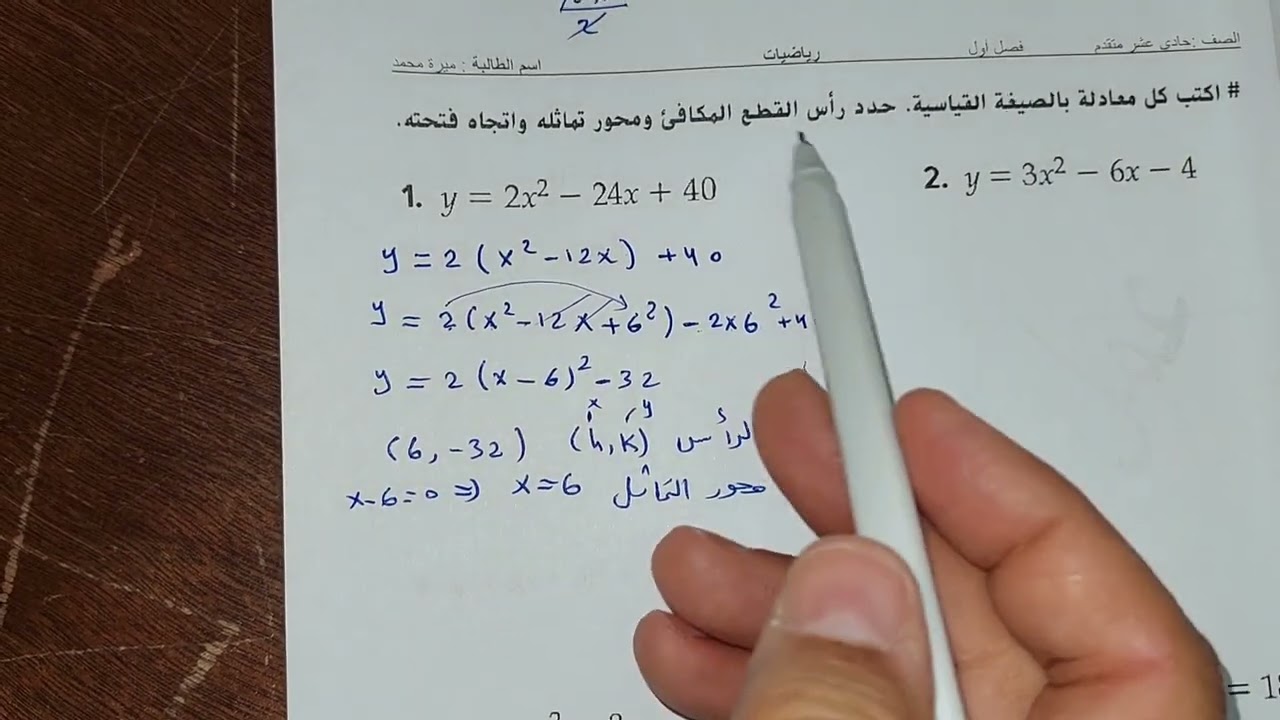 الصف :حادي عشر متقدم فصل أول رياضيات اسم الطالبة : ميرة محمد
# اكتب كل معادلة بالصيغة القياسية. حدد رأس القطع المكافئ ومحور تماثله واتجاه فتحته.
1. y = 2x² − 24x + 40
2. y = 3x² − 6x − 4
y = 2 (x² - 12x) + 40
y = 2 (x² - 12x + 6²) - 2x6² + 4
y = 2 (x - 6)² - 32
x y
(6, -32) (h, k) الرأس
x - 6 = 0 ⇒ x = 6 محور التماثل
= 18